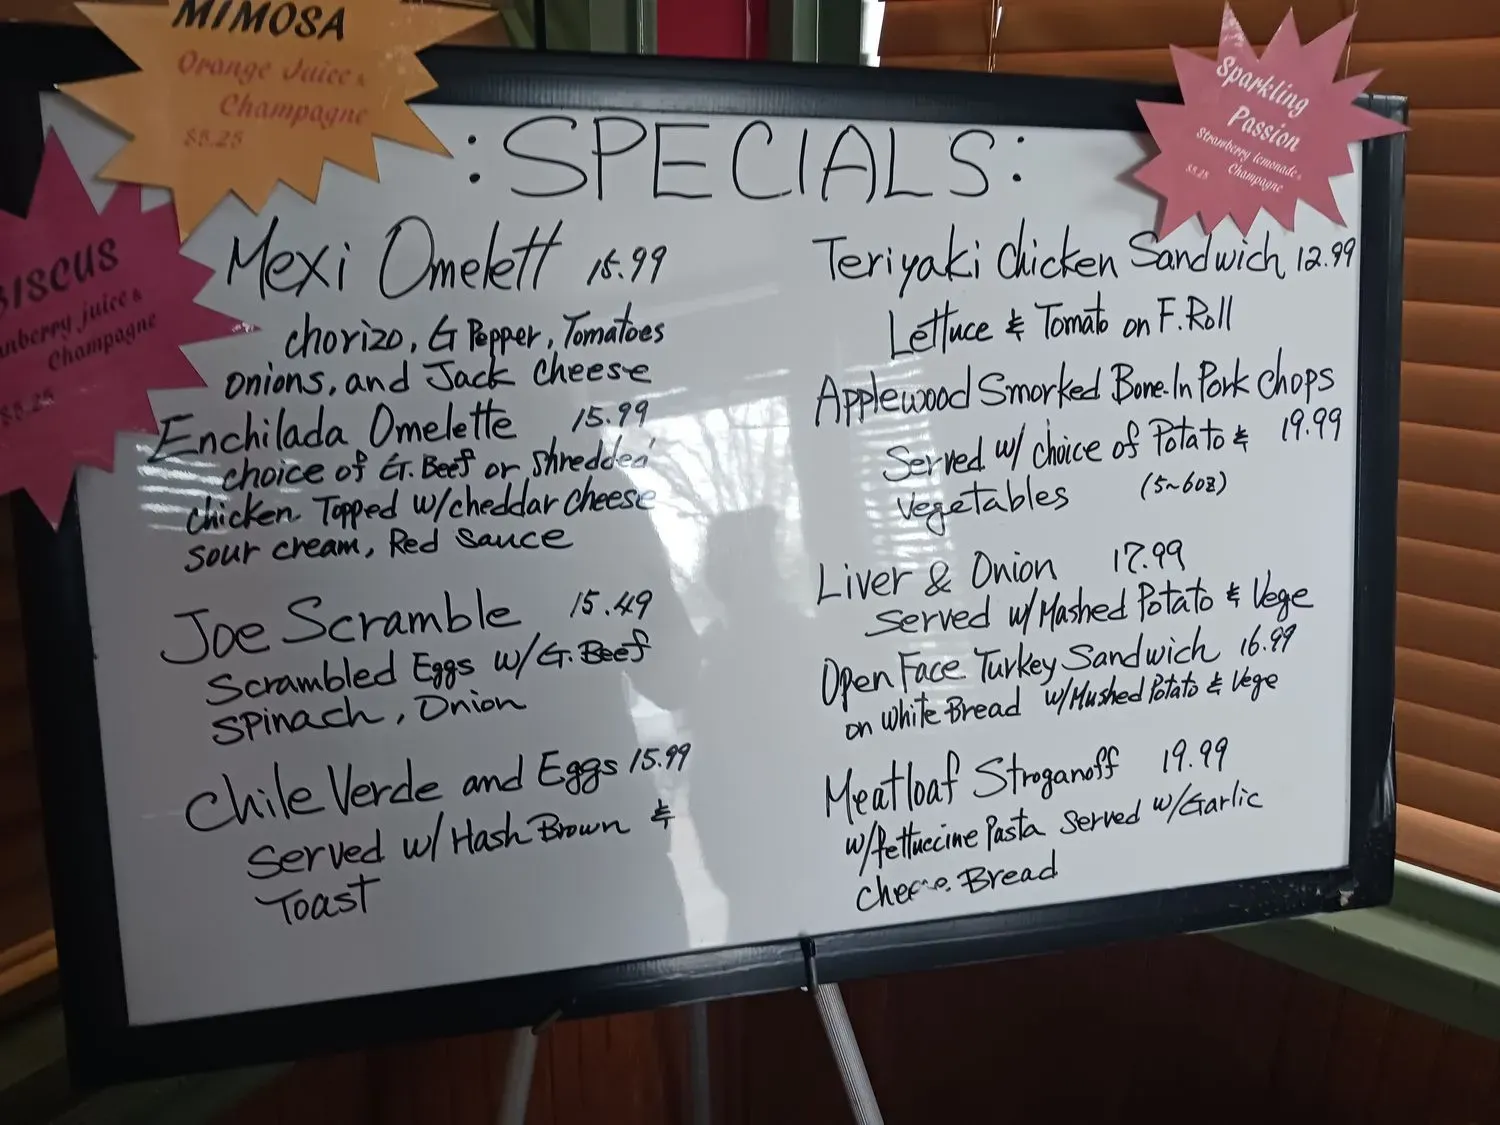 MIMOSA
Orange Juice &
Champagne
$5.25
BISCUS
anberry juice &
Champagne
$5.25
Sparkling
Passion
Strawberry lemonade &
Champagne
$5.25
: SPECIALS :
Mexi Omelett 15.99
chorizo, G Pepper, Tomatoes
onions, and Jack Cheese
Enchilada Omelette 15.99
choice of Gr. Beef or Shredded
chicken Topped w/cheddar cheese
sour cream, Red Sauce
Joe Scramble 15.49
Scrambled Eggs w/G. Beef
Spinach, Onion
Chile Verde and Eggs 15.99
Served w/ Hash Brown &
Toast
Teriyaki Chicken Sandwich 12.99
Lettuce & Tomato on F. Roll
Applewood Smorked Bone-In Pork Chops
Served w/ choice of Potato & 19.99
Vegetables (5~6oz)
Liver & Onion 17.99
Served w/ Mashed Potato & Vege
Open Face Turkey Sandwich 16.99
on White Bread w/Mushed Potato & Vege
Meatloaf Stroganoff 19.99
w/fettuccine Pasta Served w/Garlic
Cheese Bread